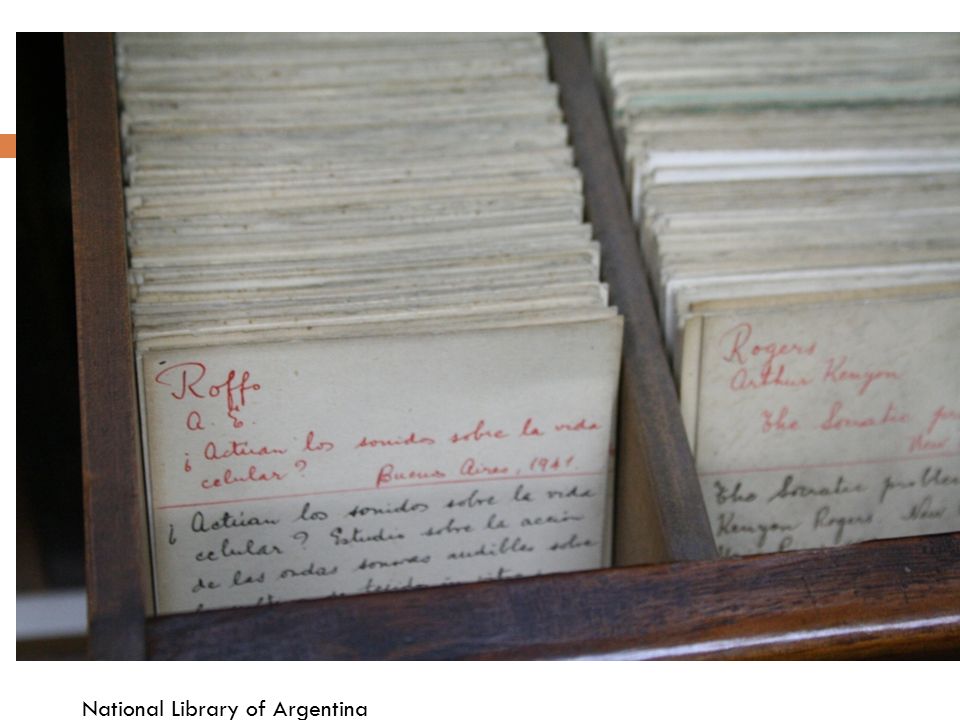 Roffo
A. E.
¿ Actúan los sonidos sobre la vida
celular? Buenos Aires, 1941.
¿ Actúan los sonidos sobre la vida
celular? Estudio sobre la acción
de las ondas sonoras audibles sobre
Rogers
Arthur Kenyon
The Socratic
New
The Socratic problem
Kenyon Rogers. New
National Library of Argentina